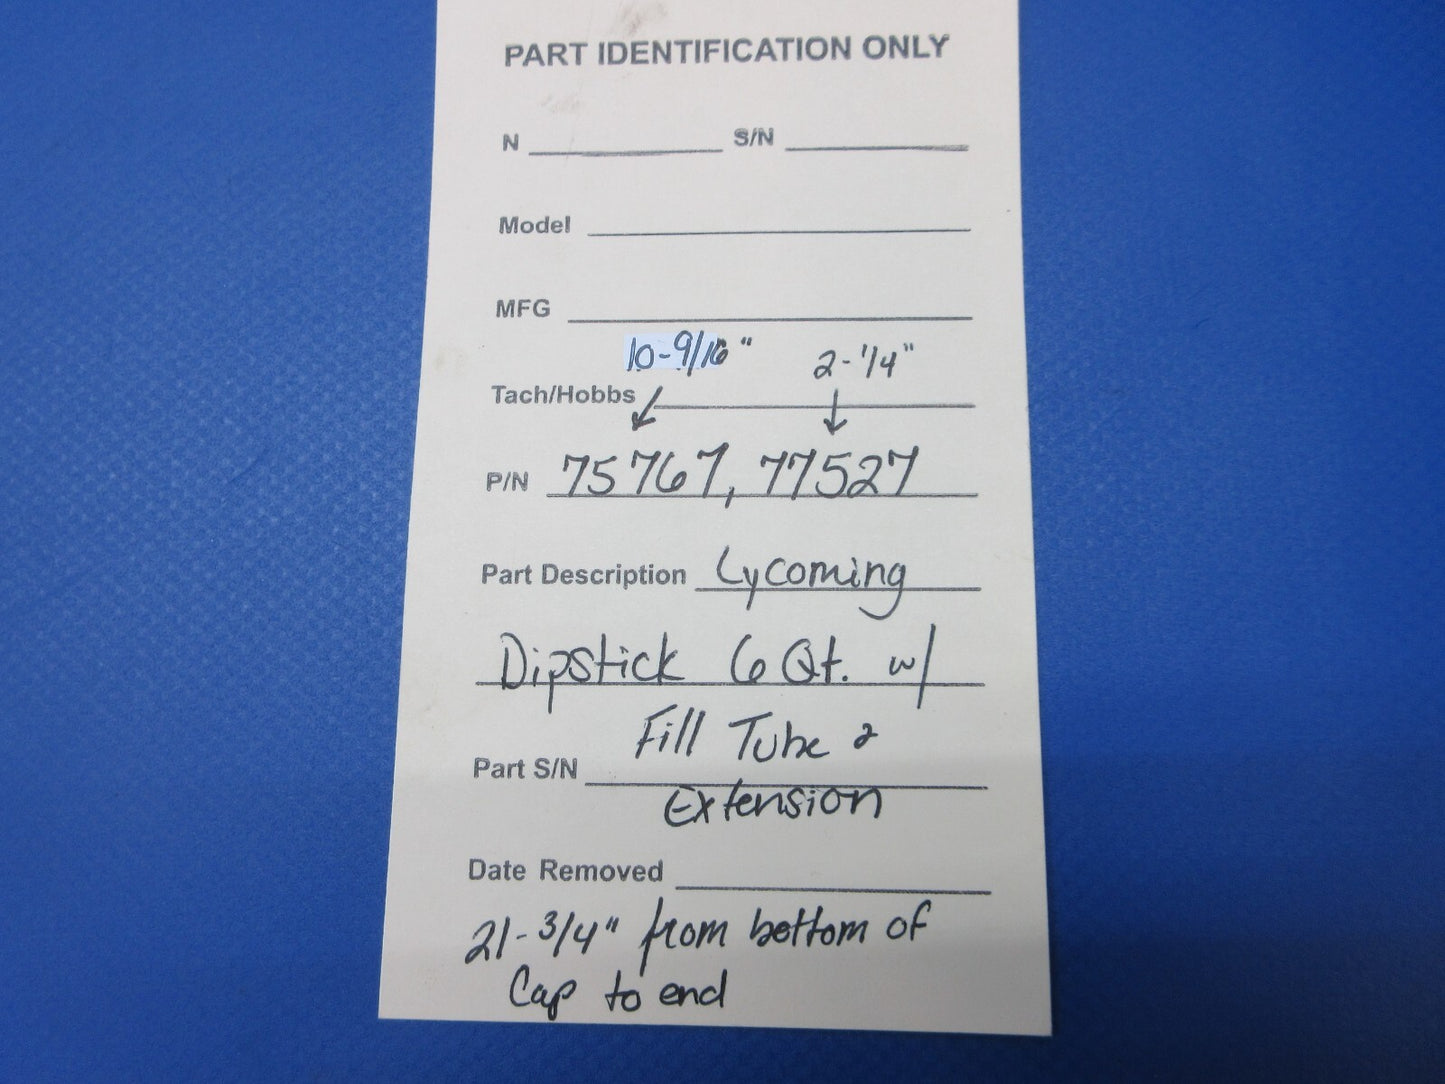 PART IDENTIFICATION ONLY
N S/N
Model
MFG
10-9/16" 2-1/4"
Tach/Hobbs
P/N 75767, 77527
Part Description Lycoming
Dipstick 6 Qt. w/
Fill Tube &
Part S/N
Extension
Date Removed
21-3/4" from bottom of
Cap to end